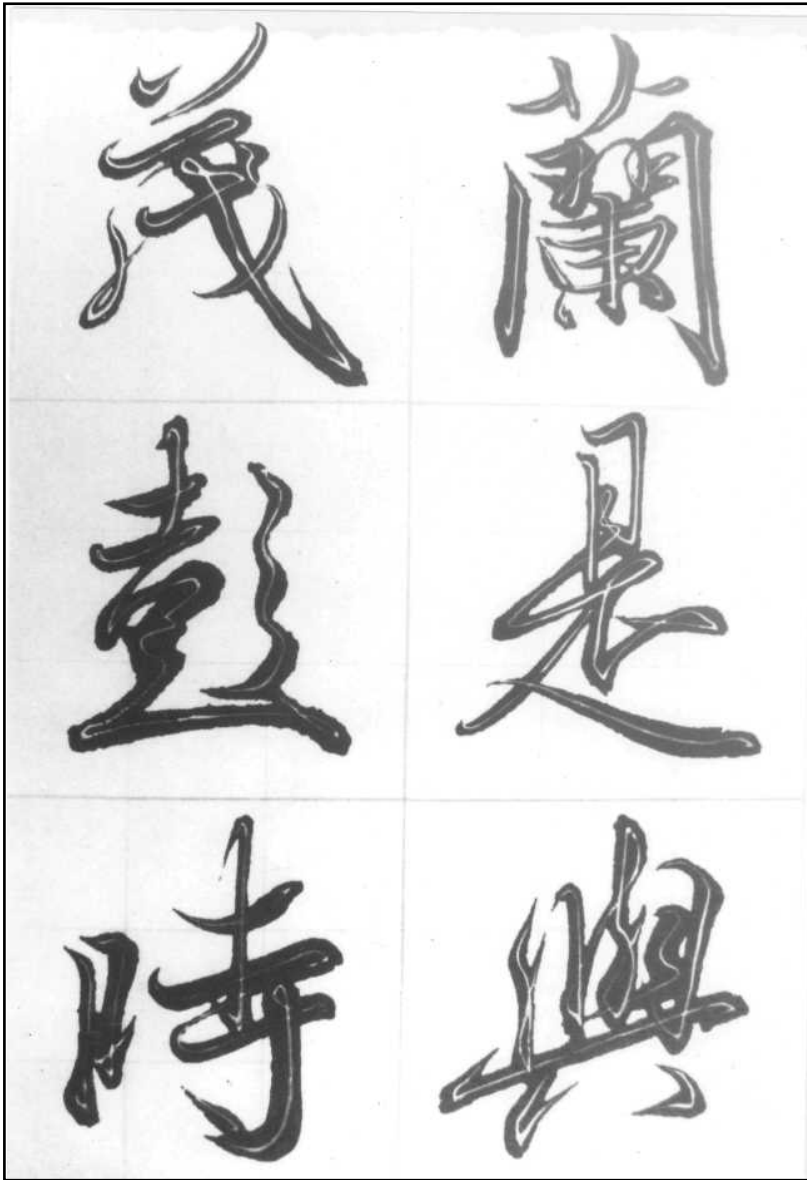 蘭是與
茂彭時